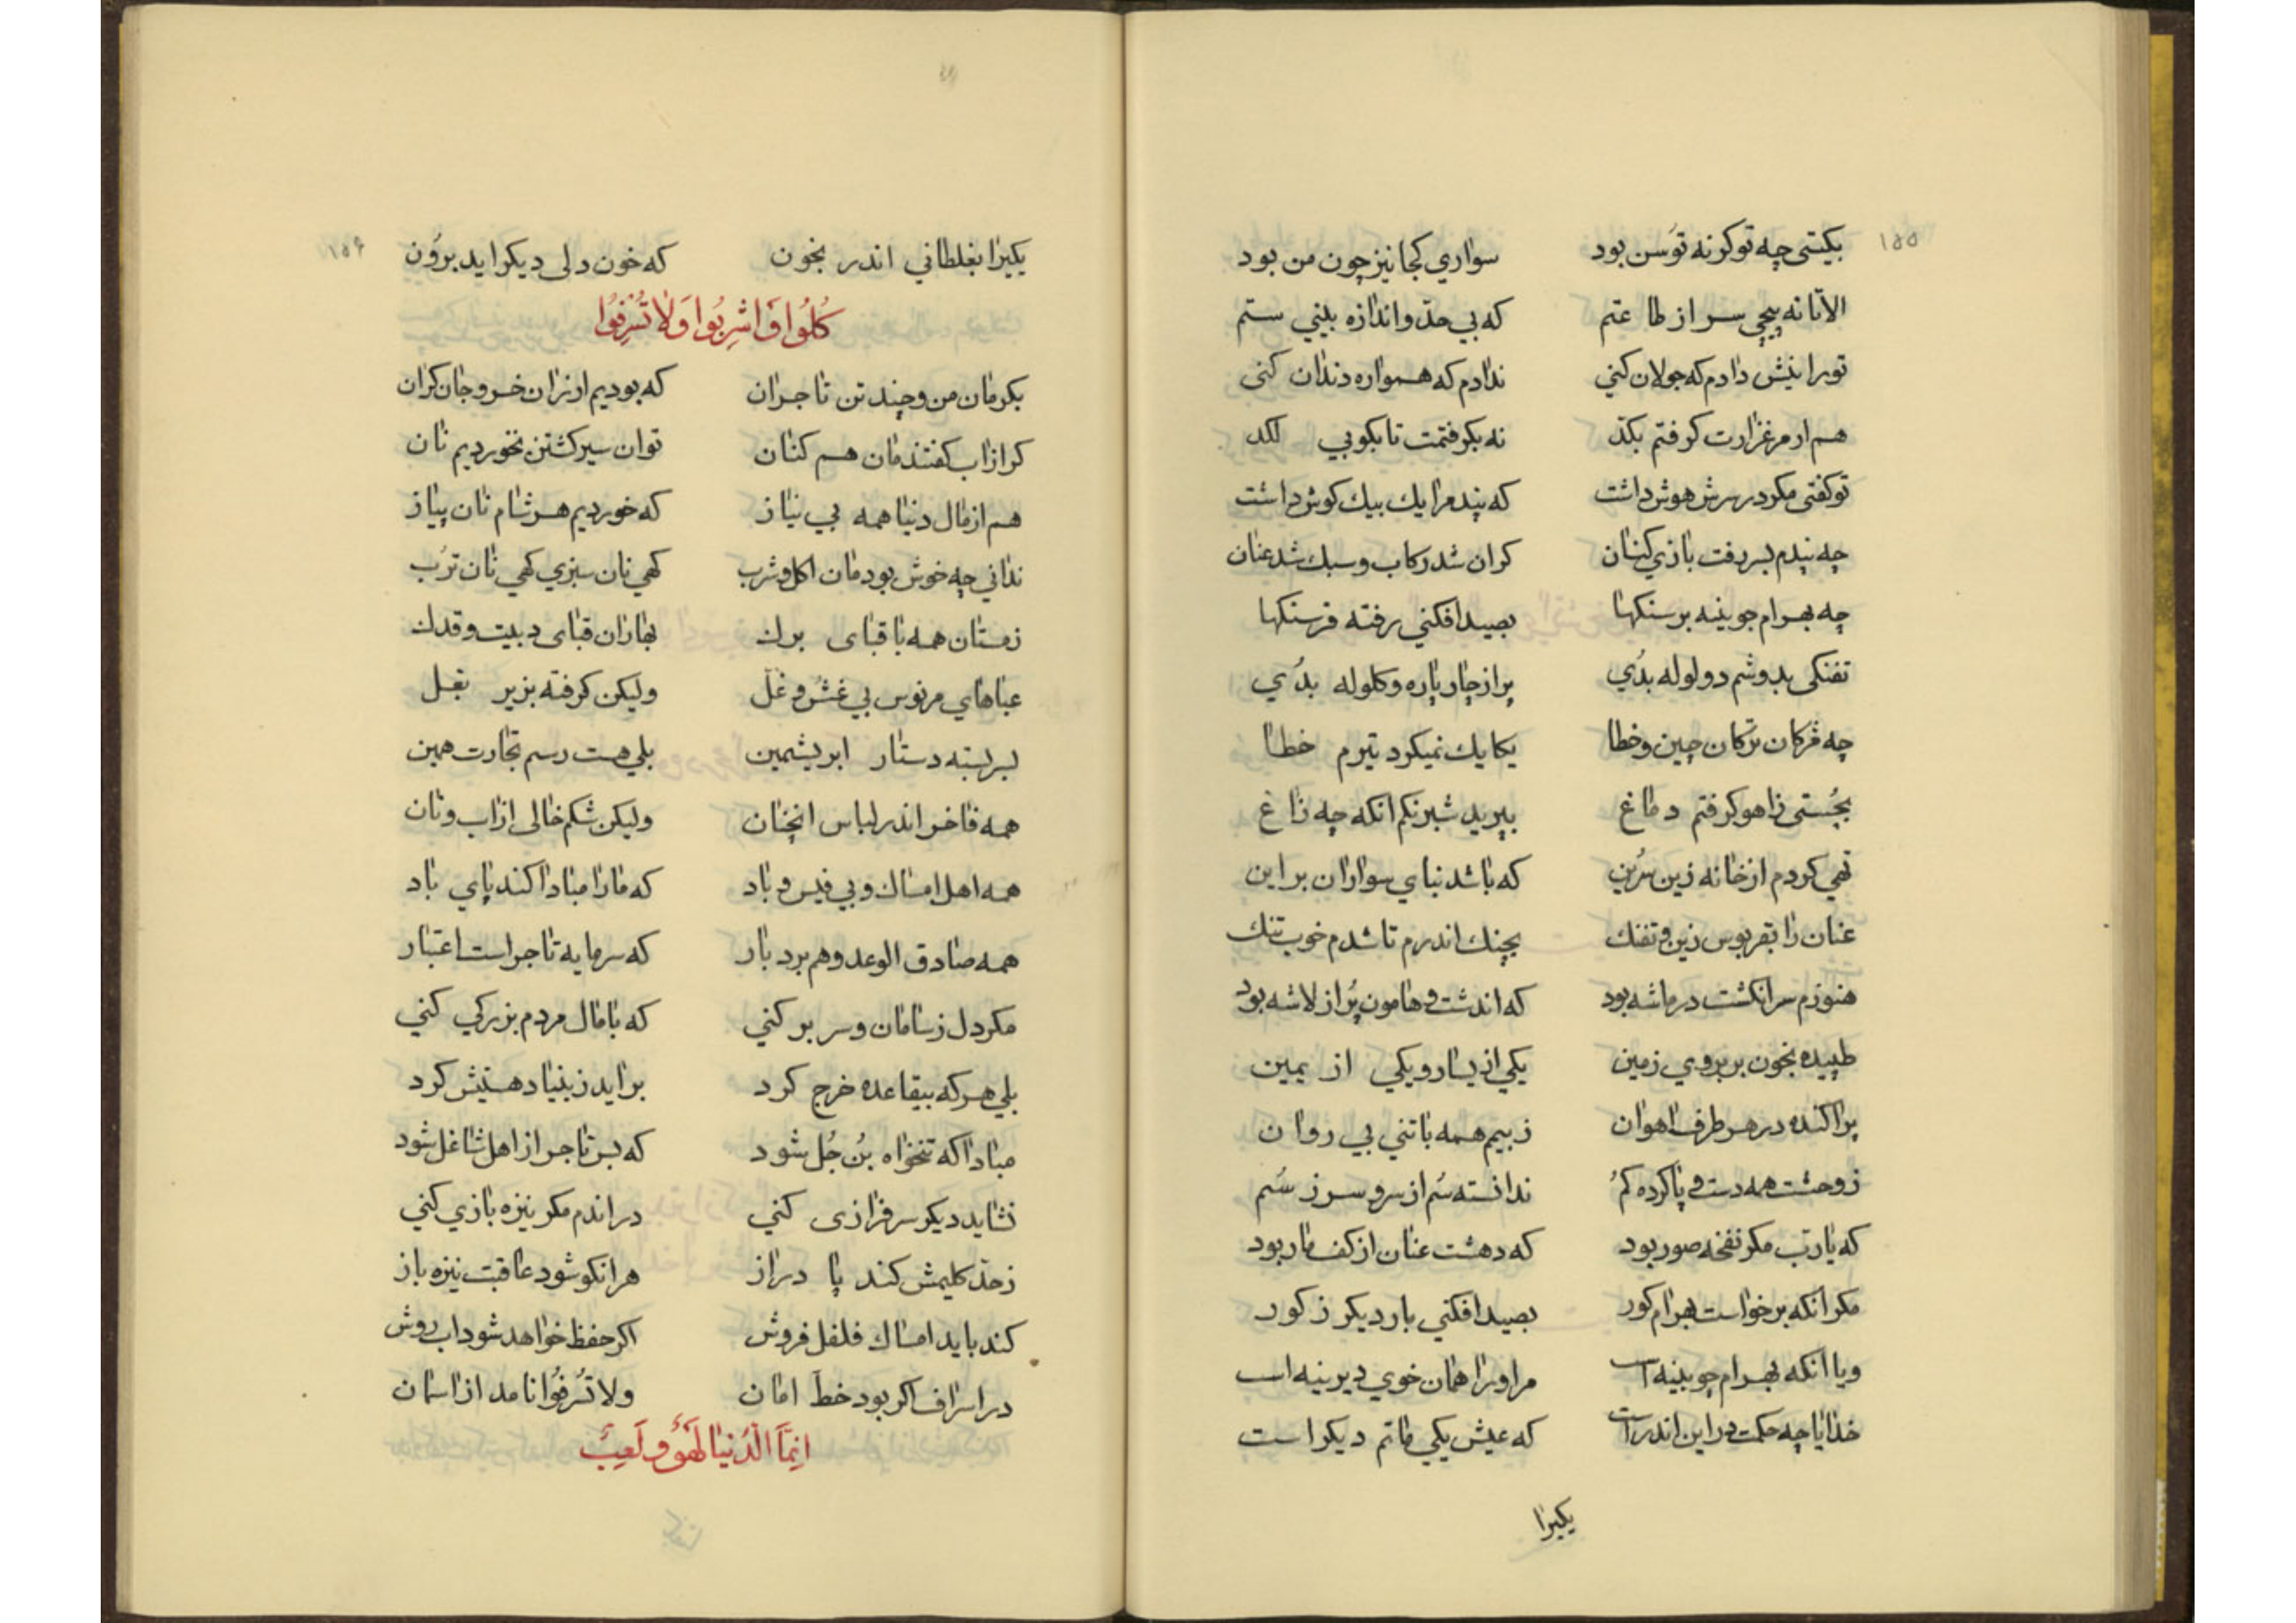 ۱۵۵
بکیتی چه توکر نه توسن بود سواری کجا نیز چون من بود
الا تا نه پیچی سر از طاعتم که بی حد و اندازه بینی ستم
تورا نیش دادم که جولان کنی ندادم که همواره دندان کنی
هم ار مرغزارت کرفتم بکد نه بکرفتمت تا بکوبی لکد
تو کفتی مکر در سرش هوش داشت که پند مرا یك بیك کوش داشت
چه پندم بسر رفت بازی کنان کران شد رکاب و سبك شد عنان
چه بهرام جوینه بر سنکها بصید افکنی رفته فرسنکها
تفنکی بدوشم دو لوله بدی پر از چار پاره و کلوله بدی
چه مژکان ترکان چین و خطا یکایك نمیکرد تیرم خطا
بجستی ز آهو کرفتم دماغ بپرید شبرنکم انکه چه زاغ
تهی کردم از خانه زین سرین که باشد بنای سواران بر این
عنان را بقربوس زین و تفنك بچنك اندرم تا شدم خوب تنك
هنوزم سر انکشت در ماشه بود که اندشت و هامون پر از لاشه بود
طپیده بخون بر بروی زمین یکی از یسار و یکی از یمین
پراکنده در هر طرف اهوان ز بیم همه با تنی بی روان
ز وحشت همه دست و پا کرده کم ندانسته سم از سر و سر ز سم
که یا رب مکر نفخه صور بود که دهشت عنان از کف ما ربود
مکر انکه برخواست بهرام کور بصید افکنی بار دیکر ز کور
و یا انکه بهرام جوبینه است مر او را همان خوی دیرینه است
خدایا چه حکمت در این اندر است که عیش یکی ماتم دیکر است
یکیرا
۱۵۶
یکیرا بغلطانی اندر بخون که خون دلی دیکر اید برون
کُلُوا وَاشرِبُوا وَلا تُسرِفُوا
بکرمان من و چند تن تاجران که بودیم ارزان خر و جان کران
کر از اب کفتند مان هم کنان توان سیر کشتن نخوردیم نان
هم از مال دنیا همه بی نیاز که خوردیم هر شام نان پیاز
ندانی چه خوش بود مان اکل و شرب کهی نان سبزی کهی نان ترب
زمستان همه با قبای برك بهاران قبای دبیت و قدك
عباهای مرنوس بی غش و غل ولیکن کرفته بزیر بغل
بسر بسته دستار ابریشمین بلی هست رسم تجارت همین
همه فاخر اندر لباس انچنان ولیکن شکم خالی از اب و نان
همه اهل امساك و بی فیس و باد که ما را مبادا کند پای باد
همه صادق الوعد و هم بردبار که سرمایه تاجر است اعتبار
مکر دل ز سامان و سر بر کنی که با مال مردم بزرکی کنی
بلی هر که بیقاعده خرج کرد براید ز بنیاد هستیش کرد
مبادا که تنخواه بن جل شود که بس تاجر از اهل شاغل شود
نشاید دیکر سرفرازی کنی در اندم مکر نیزه بازی کنی
ز حد کلیمش کند پا دراز هر انکو شود عاقبت نیزه باز
کند باید امساك فلفل فروش اکر حفظ خواهد شود اب روش
در اسراف اکر بود خط امان ولا تُسرِفُوا نامد از اسمان
اِنَّمَا الدُّنیا لَهوٌ و لَعِبٌ